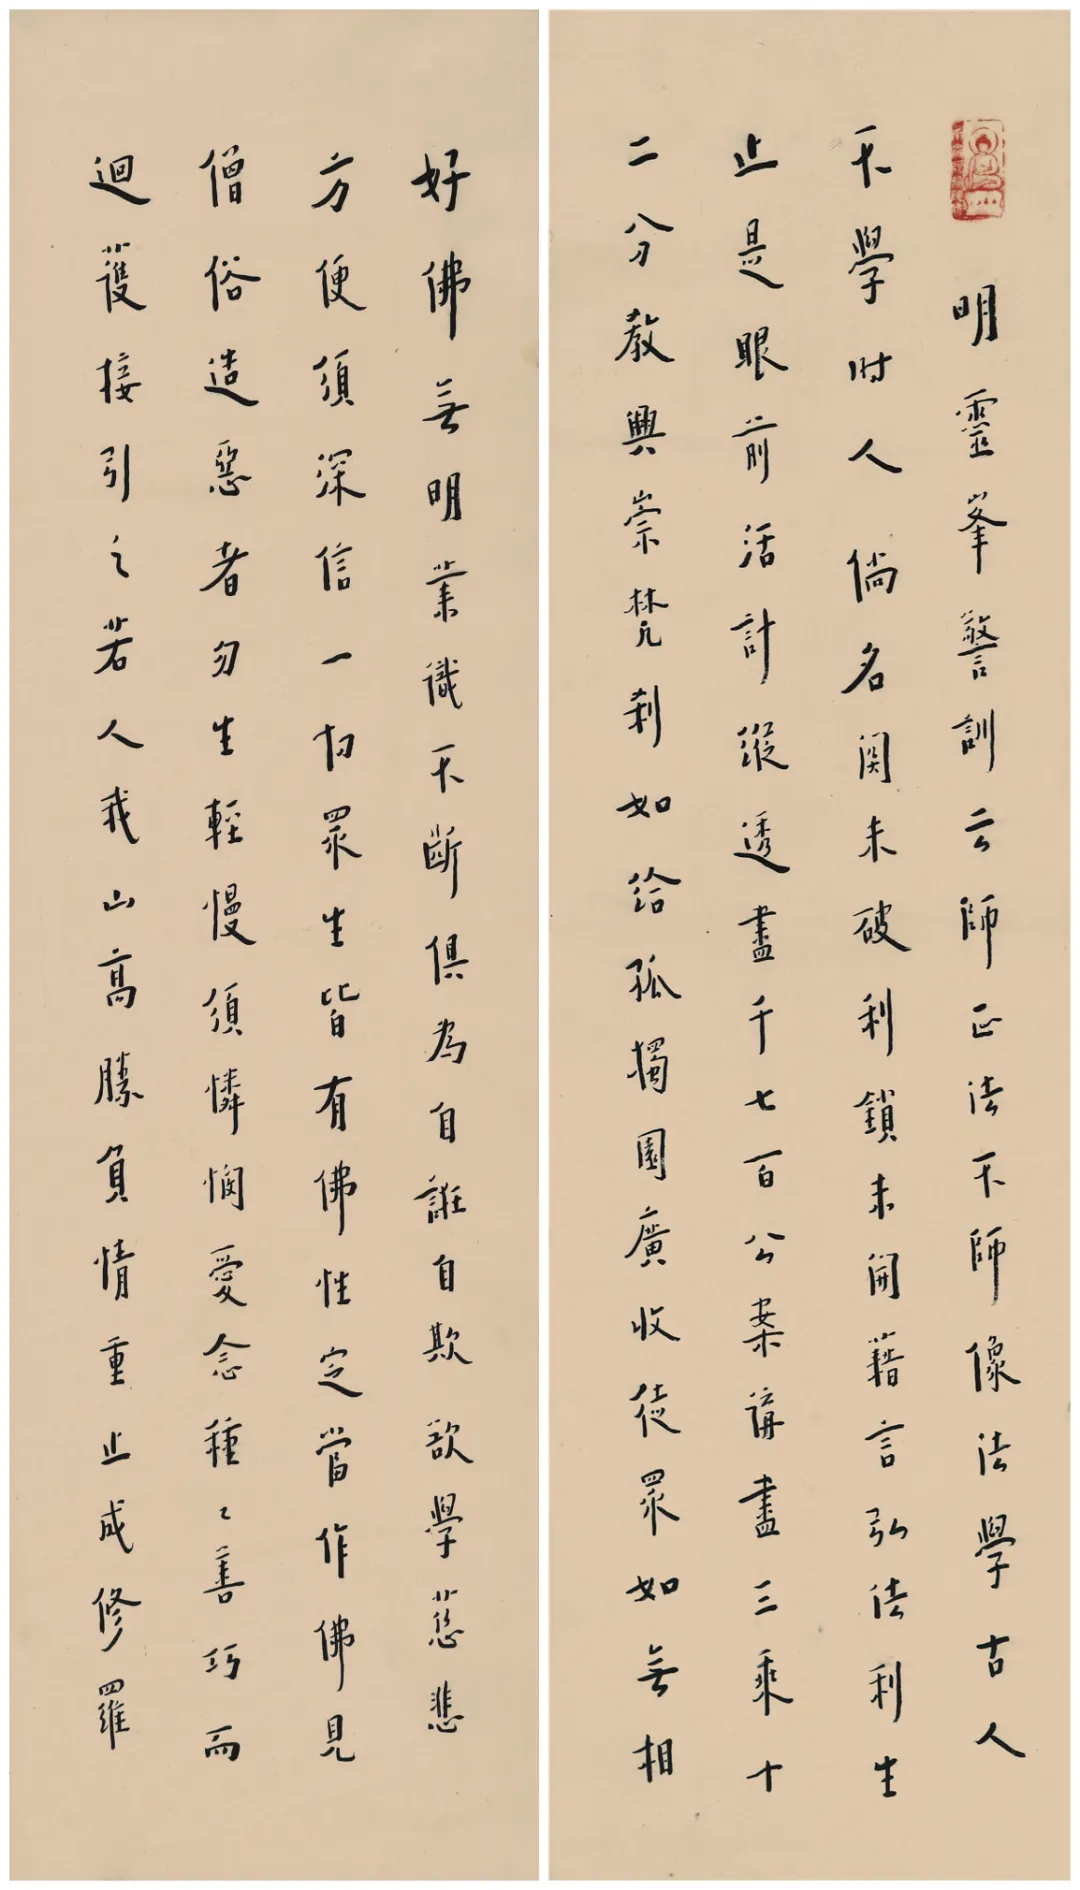 明靈峯警訓云師正法不師像法學古人
不學时人倘名関未破利鎖未開藉言弘法利生
止是眼前活計縱透盡千七百公案講盡三乘十
二分教興崇梵刹如给孤獨園廣收徒眾如無相
好佛無明業識不斷俱為自誑自欺欲學慈悲
方便須深信一切眾生皆有佛性定當作佛見
僧俗造惡者勿生輕慢須憐憫愛念種々善巧而
迴護接引之若人我山高勝負情重止成修羅